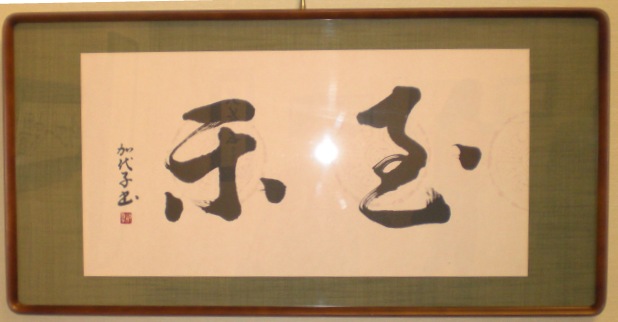 至楽
加代子書